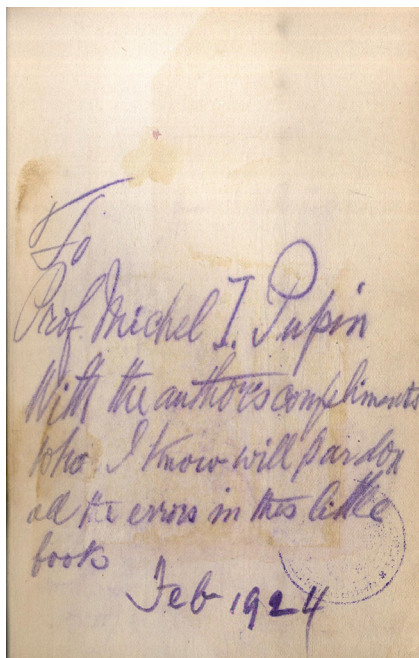 To
Prof. Michel I. Pupin
With the author's compliments
who I know will pardon
all the errors in this little
book
Feb 1924